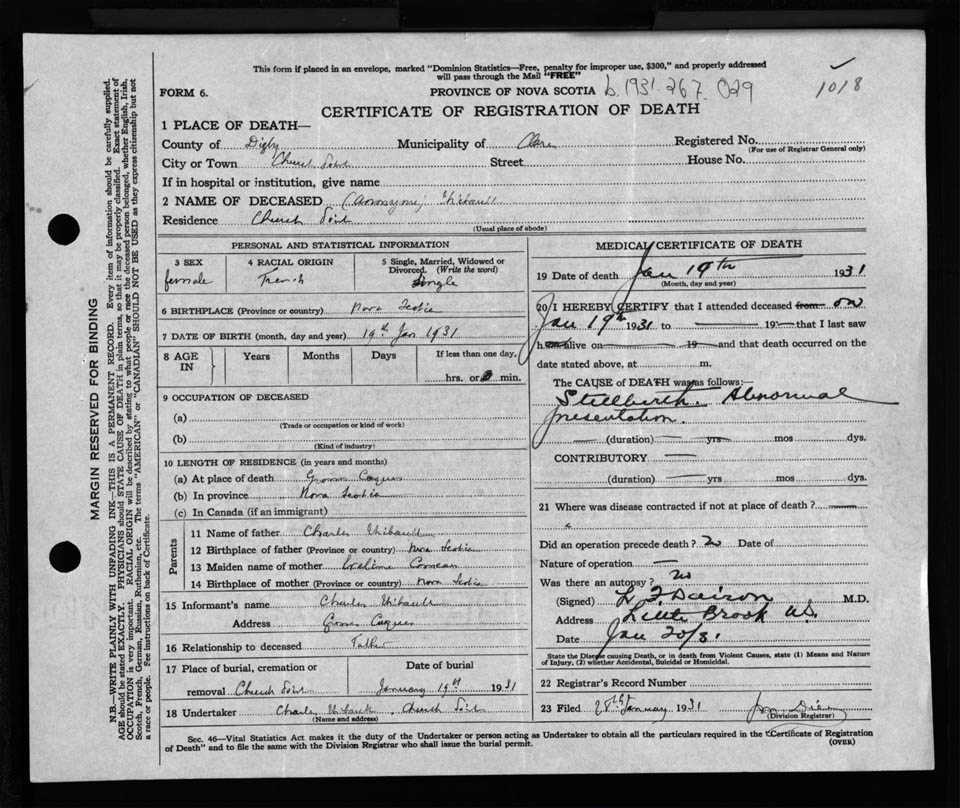 This form if placed in an envelope, marked "Dominion Statistics—Free, penalty for improper use, $300," and properly addressed
will pass through the Mail "FREE"
FORM 6.
PROVINCE OF NOVA SCOTIA b.1931-267-029
1018
CERTIFICATE OF REGISTRATION OF DEATH
1 PLACE OF DEATH—
County of Digby Municipality of Clare Registered No.
(For use of Registrar General only)
City or Town Church Point Street House No.
If in hospital or institution, give name
2 NAME OF DECEASED (Anonymous) Thibault
Residence Church Point
(Usual place of abode)
PERSONAL AND STATISTICAL INFORMATION
3 SEX 4 RACIAL ORIGIN 5 Single, Married, Widowed or
Divorced. (Write the word)
female French Single
6 BIRTHPLACE (Province or country) Nova Scotia
7 DATE OF BIRTH (month, day and year) 19th Jan 1931
8 AGE IN Years Months Days If less than one day,
hrs. or min.
9 OCCUPATION OF DECEASED
(a)
(Trade or occupation or kind of work)
(b)
(Kind of industry)
10 LENGTH OF RESIDENCE (in years and months)
(a) At place of death Grosses Coques
(b) In province Nova Scotia
(c) In Canada (if an immigrant)
Parents
11 Name of father Charles Thibault
12 Birthplace of father (Province or country) Nova Scotia
13 Maiden name of mother Comeau
14 Birthplace of mother (Province or country) Nova Scotia
15 Informant's name Charles Thibault
Address Grosses Coques
16 Relationship to deceased Father
17 Place of burial, cremation or Date of burial
removal Church Point January 19th 1931
18 Undertaker Charles Thibault, Church Point
(Name and address)
MEDICAL CERTIFICATE OF DEATH
19 Date of death Jan 19th 1931
(Month, day and year)
20 I HEREBY CERTIFY that I attended deceased from on
Jan 19th 1931 to 19 that I last saw
h alive on 19 and that death occurred on the
date stated above, at m.
The CAUSE of DEATH was as follows:—
Stillbirth. Abnormal
presentation.
(duration) yrs mos dys.
CONTRIBUTORY
(duration) yrs mos dys.
21 Where was disease contracted if not at place of death?
Did an operation precede death? No Date of
Nature of operation
Was there an autopsy? No
(Signed) M.D.
Address Little Brook N.S.
Date Jan 20/31
State the Disease causing Death, or in death from Violent Causes, state (1) Means and Nature
of Injury, (2) whether Accidental, Suicidal or Homicidal.
22 Registrar's Record Number
23 Filed 28th January 1931
(Division Registrar)
Sec. 46—Vital Statistics Act makes it the duty of the Undertaker or person acting as Undertaker to obtain all the particulars required in the "Certificate of Registration
of Death" and to file the same with the Division Registrar who shall issue the burial permit. (OVER)
MARGIN RESERVED FOR BINDING
N.B.—WRITE PLAINLY WITH UNFADING INK—THIS IS A PERMANENT RECORD. Every item of information should be carefully supplied.
AGE should be stated EXACTLY. PHYSICIANS should STATE CAUSE OF DEATH in plain terms, so that it may be properly classified. Exact statement of
OCCUPATION is very important. RACIAL ORIGIN will be described by stating to what people or race the deceased person belonged, whether English, Irish,
Scotch, French, German, Russian, Ruthenian, etc. The terms "AMERICAN" or "CANADIAN" SHOULD NOT BE USED as they express citizenship but not
a race or people. See instructions on back of Certificate.